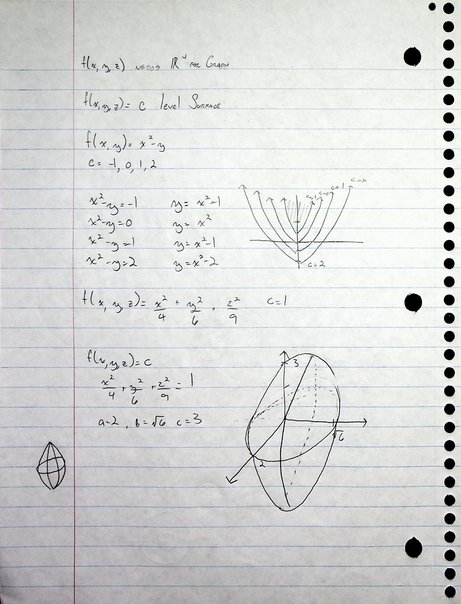 f(x, y, z) NEEDS ℝ⁴ FOR GRAPH
f(x,y,z) = C level SURFACE
f(x, y) = x² - y
C = -1, 0, 1, 2
x² - y = -1 y = x² + 1
x² - y = 0 y = x²
x² - y = 1 y = x² - 1
x² - y = 2 y = x² - 2
c=1
c=2
f(x, y, z) = x²/4 + y²/6 + z²/9 C=1
f(x,y,z) = C
x²/4 + y²/6 + z²/9 = 1
a=2, b=√6 c=3
3
√6
2